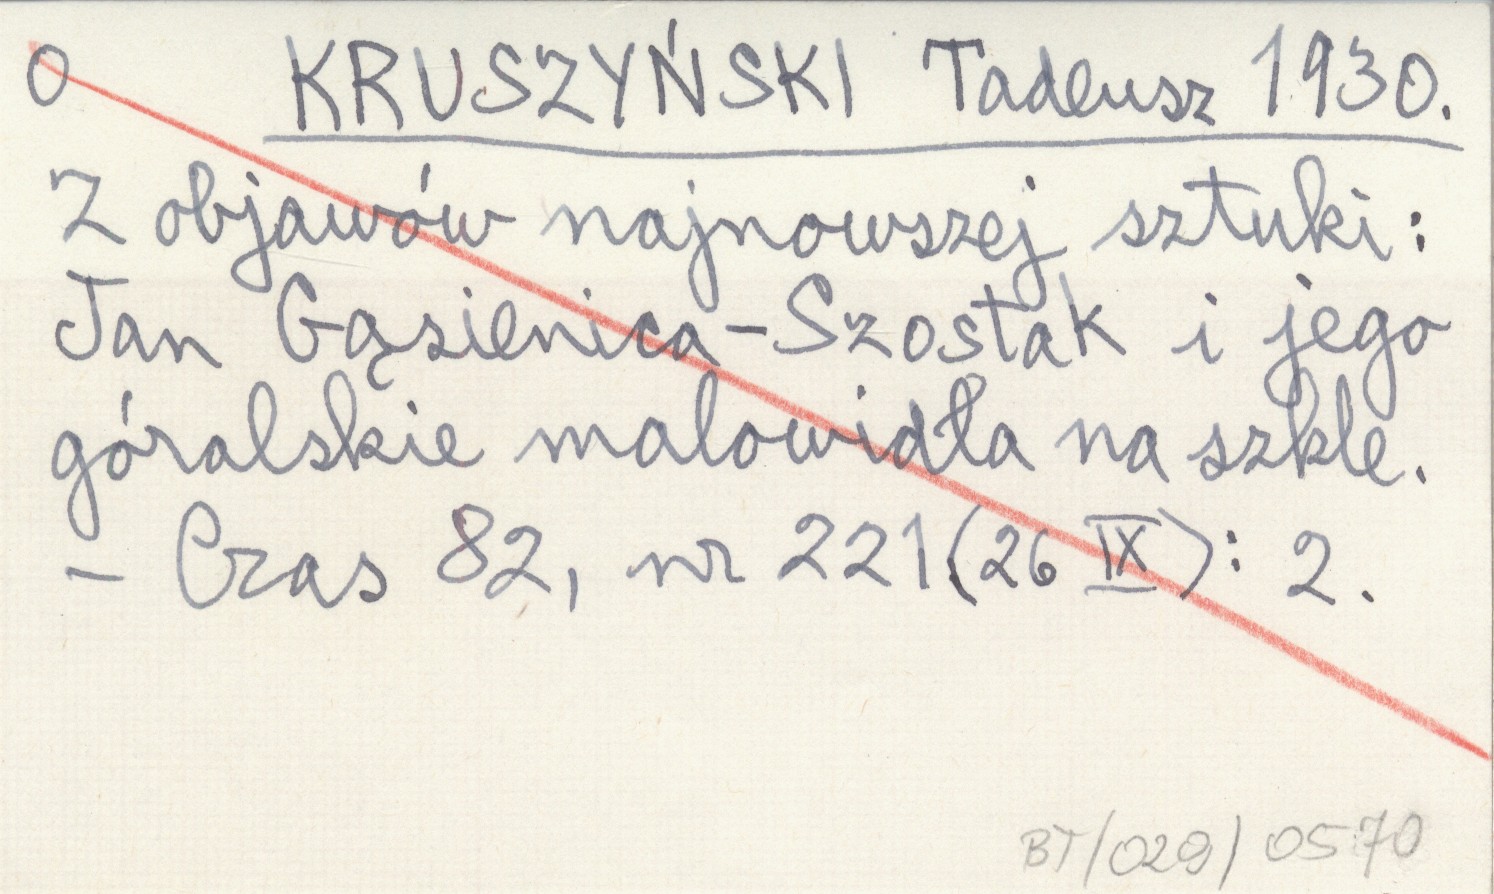 O KRUSZYŃSKI Tadeusz 1930.
Z objawów najnowszej sztuki:
Jan Gąsienica-Szostak i jego
góralskie malowidła na szkle.
– Czas 82, nr 221 (26 IX): 2.
BT/029/0570